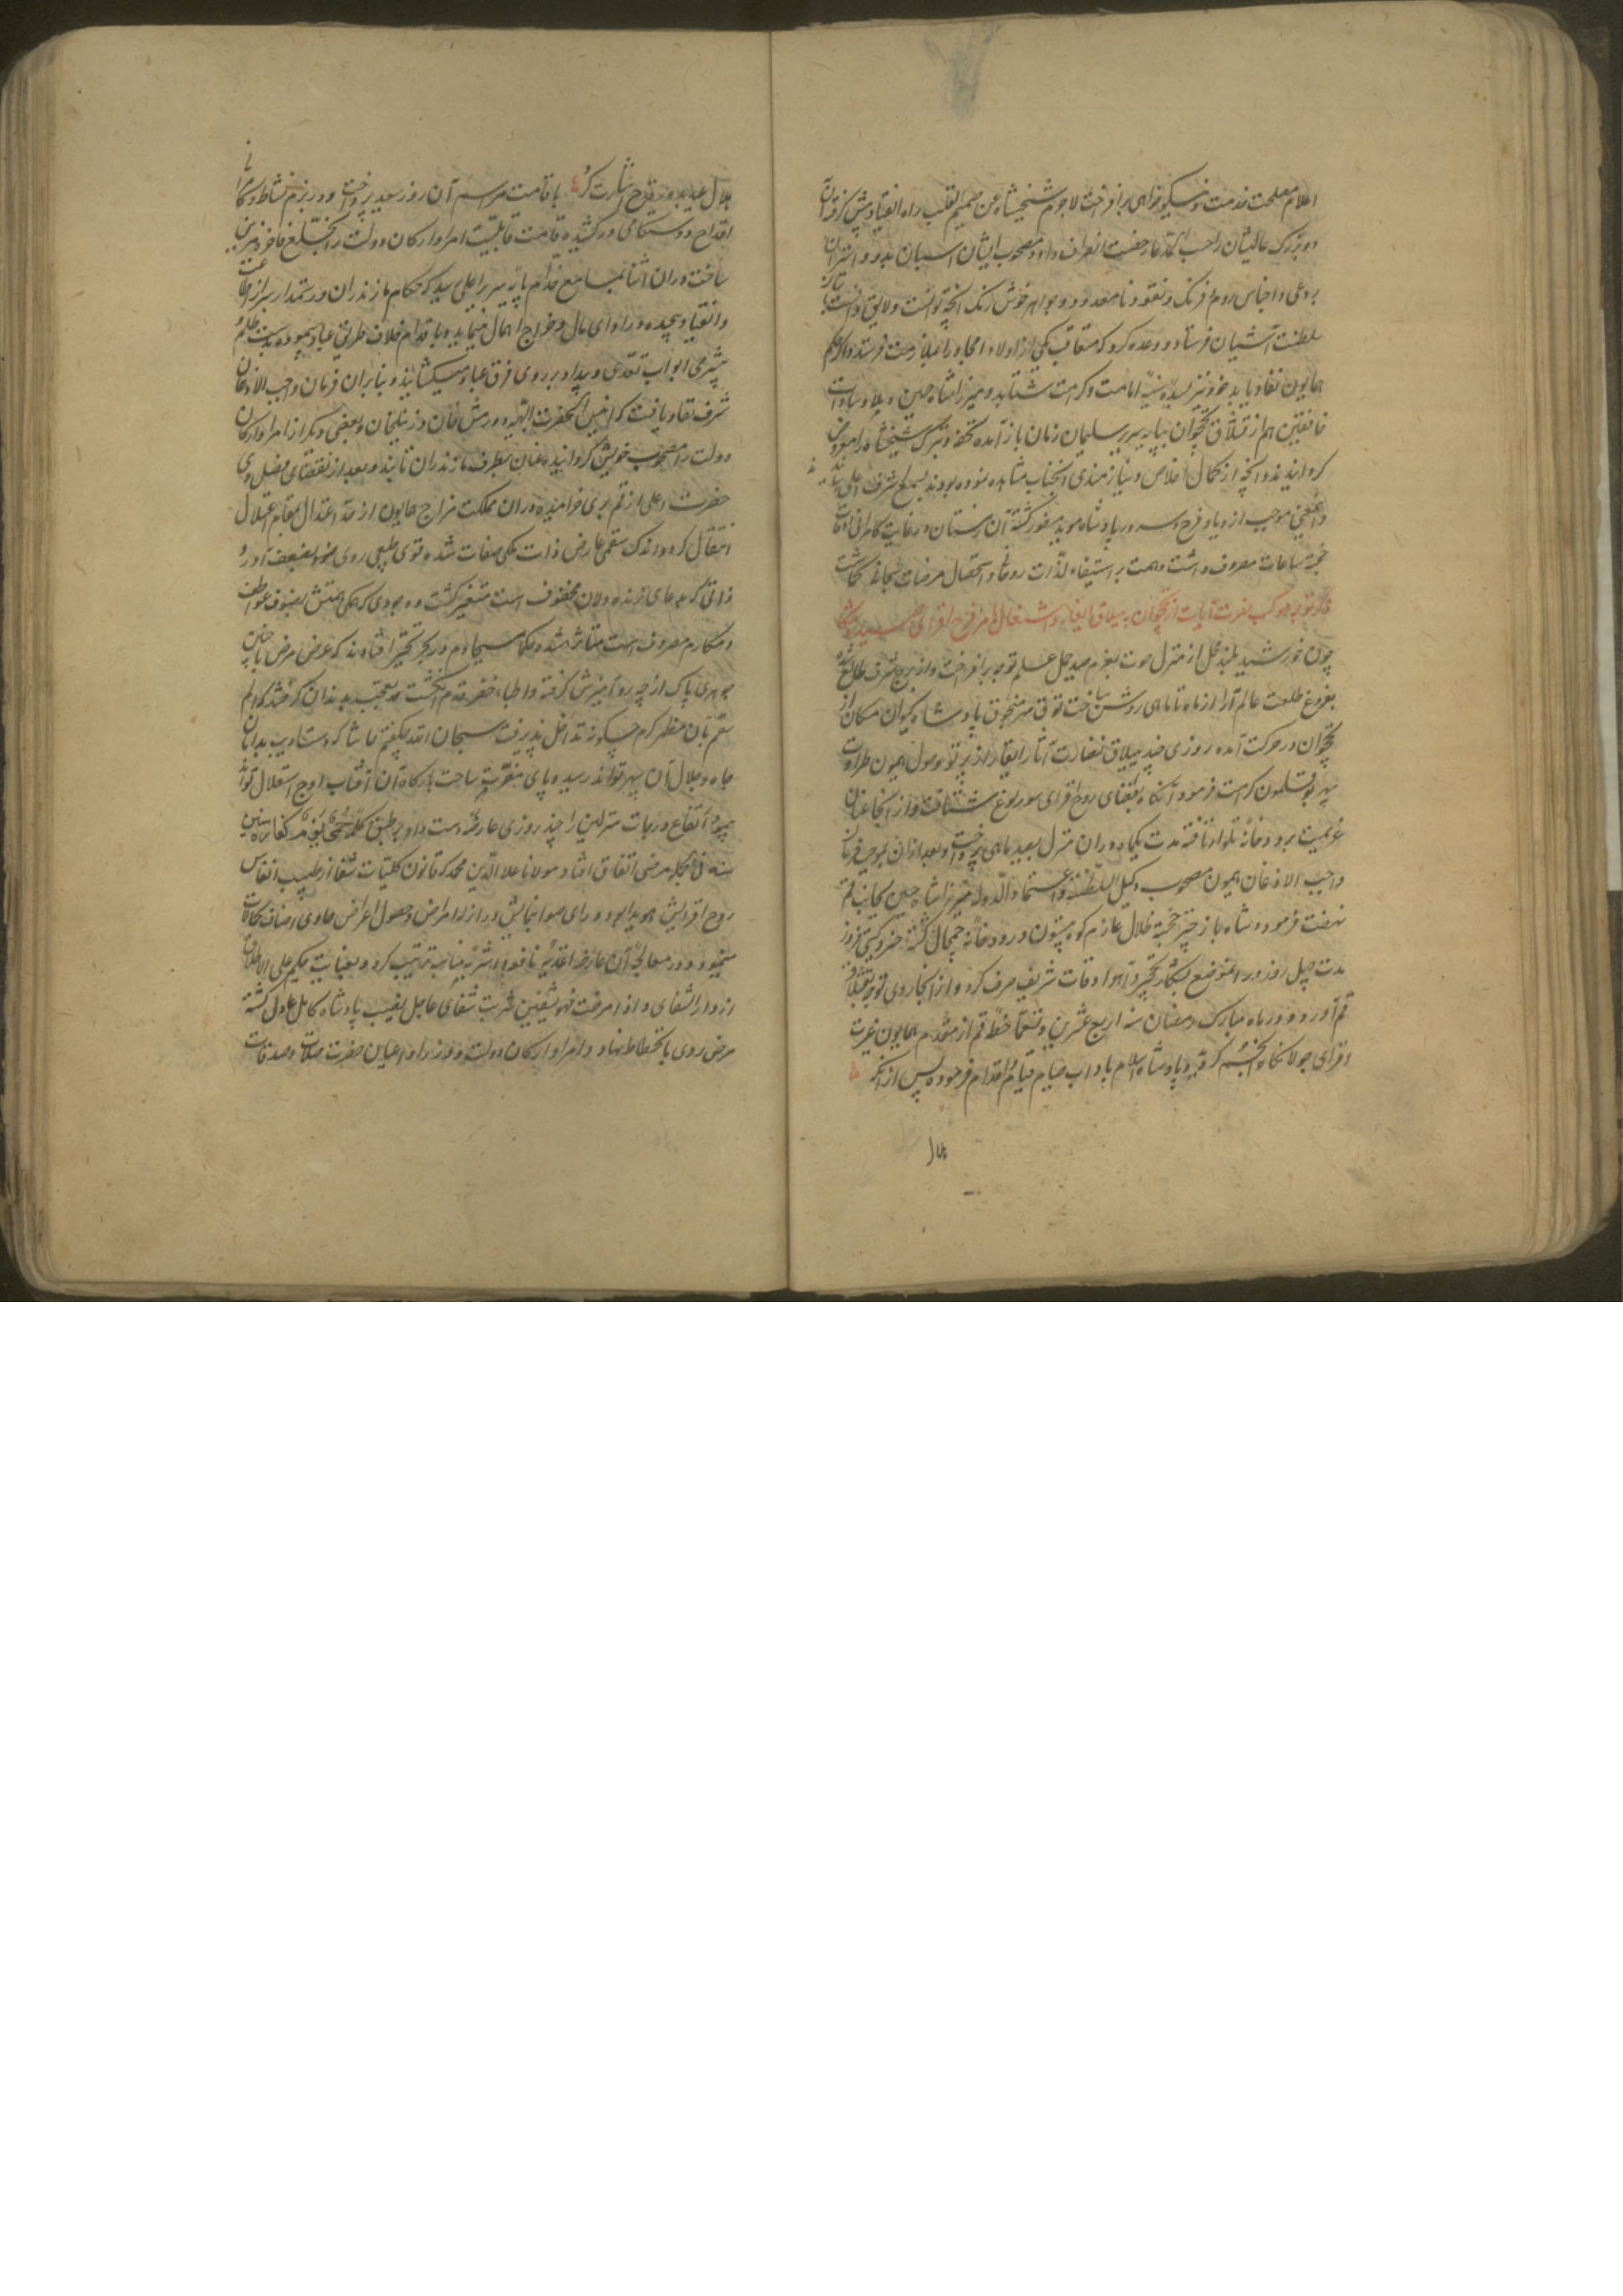 اعلام مصلحت خدمت و نیکوخواهی برافراخت لاجرم شیخشاه من صمیم القلب راه انقیاد پیش گرفته آن
دو بزرگ عالیشان را حسب المدعا رخصت انصراف داد و مصحوب ایشان اسبان بدو و استران
بردعی و اجناس روم و فرنک و نقود نامعدود و جواهر خوش رنک آنچه توانست و لایق دانست
سلطنت آشیان فرستاد و وعده کرد که متعاقب یکی از اولاد امجاد را بملازمت فرستد و اگر حکم
همایون نفاد یابد خود نیز بسده سنیه امامت و کرامت شتابد و میرزا شاه حسین و
از قشلاق نخجوان بپایه سریر سلیمان زمان باز آمده تحف و تبرک شیخشاه را معروض
کردانیدند و آنچه از کمال اخلاص و نیازمندی آنجناب مشاهده نموده بودند بمسامع شرف اعلی
و اینمعنی موجب ازدیاد فرح و سرور پادشاه مؤید منصور کشته آن زمستان در غایت کامرانی اوقات
خجسته ساعات مصروف داشت و همت بر استیفاء لذات روحانی و استحصال مرضات سبحانی کماشت
ذکر توجه موکب نصرت آیات از نخجوان به ییلاق و اشتغال بامر فرح افزای صید و شکار
چون خورشید بلند محل از منزل حوت بعزم صید حمل علم توجه برافراخت و از برج شرف طالع شده
بفروغ طلعت عالم آرا از ماه تا ماهی روشن ساخت توق منجوق پادشاه کیوان مکان از
نخجوان در حرکت آمده روزی چند ییلاق نضارت آثار از پرتو وصول همیون طراوت
سپهر بوقلمون کرامت فرمود آنکاه بفضای روح افزای سورلوغ شتافت و از آنجا عنان
عزیمت برودخانه تلوار تافته مدت یکماه در آن منزل بصید ماهی پرداخت و بعد از آن بموجب فرمان
واجب الاذعان همیون مصحوب وکیل السلطنه و اعتماد الدوله میرزا شاه حسین بجانب قم
نهضت فرمود و شاه باز چتر خجسته ظلال عازم کوه بیستون و رودخانه چمچال کشته خسرو کیتی فروز
مدت چهل روز در انموضع بشکار نخجیر و آهو اوقات شریف صرف کرد و از آنجا روی توجه بقشلاق
قم آورد و در ماه مبارک رمضان سنه اربع عشرین و تسعمائه خطه قم از مقدم همایون غیرت
افزای جولانکاه انجم کردید و پادشاه اسلام باداب صیام قیام و اقدام فرموده پس از آنکه
هلال عید بدور قدح اشارت کرد باقامت مراسم آن روز سعید پرداخت و در بزم نشاط و کامرانی
اقداح دوستکامی درکشیده قامت قابلیت امرا و ارکان دولت را بخلع فاخره مزین
ساخت در آن اثنا بمسامع خدام پایه سریر اعلی رسید که حکام مازندران و رستمدار سر از اطاعت
و انقیاد پیچیده در ادای مال و خراج اهمال مینمایند و باقدام خلاف طریق عناد پیموده بدست ظلم
بیشرمی ابواب تعدی و بیداد بر روی فرق عباد میکشایند و بنابران فرمان واجب الاذعان
شرف نفاد یافت که انیس الحضرت البهیه دورمش خان و زینلخان و بعضی دیکر از امرا و ارکان
دولت را مصحوب خویش کردانیده عنان بطرف مازندران تابند و بعد از انقضای فصل دی
حضرت اعلی از قم بری خرامیده در آن مملکت مزاج همایون از حد اعتدال بمقام اعتلال
انتقال کرد و اندک سقمی عارض ذات ملکی صفات شده قوی طبیعی روی بضعف آورد
ذاتی که بدعای زنده دلان محفوف است متغیر کشت و وجودی که همکی همتش بصنوف عواطف
و مکارم مصروف است متأثر شد حکماء مسیحا دم در بحر تحیر افتادند که عرض مرض با چنین
جوهری پاک از چه رو آمیزش کرفته و اطباء خضر قدم انکشت تعجب بدندان کرفتند که الم
سقم بآن مظهر کرم چکونه تداخل پذیرفت سبحان الله چکفتم حاشا که دست آسیب بدامان
جاه و جلال آن سپهر تواند رسید و پای مضرت ساحت بارکاه آن آفتاب اوج استقلال تواند
پیمود ارتفاع درجات منزلتش را چند روزی عارضه دست داد و بر طبق کلمه حمی یوم کفارة سنین
سنه فی الجمله مرضی اتفاق افتاد مولانا علاء الدین محمد که قانون کلیات شفا از طبیب انفاس
روح افزایش هویدا بود و رای صوابنمایش در ازاله امراض و حصول اعراض حاوی اصناف کمالات
مینمود در معالجه آن عارضه اغذیه نافعه و اشربه مناسب ترتیب کرد و بعنایت حکیم علی الاطلاق
از دار الشفای و اذا مرضت فهو یشفین شربت شفای عاجل نصیب پادشاه کامل عادل کشته
مرض روی بانحطاط نهاد و امرا و ارکان دولت و وزرا و اعیان حضرت صلات و صدقات